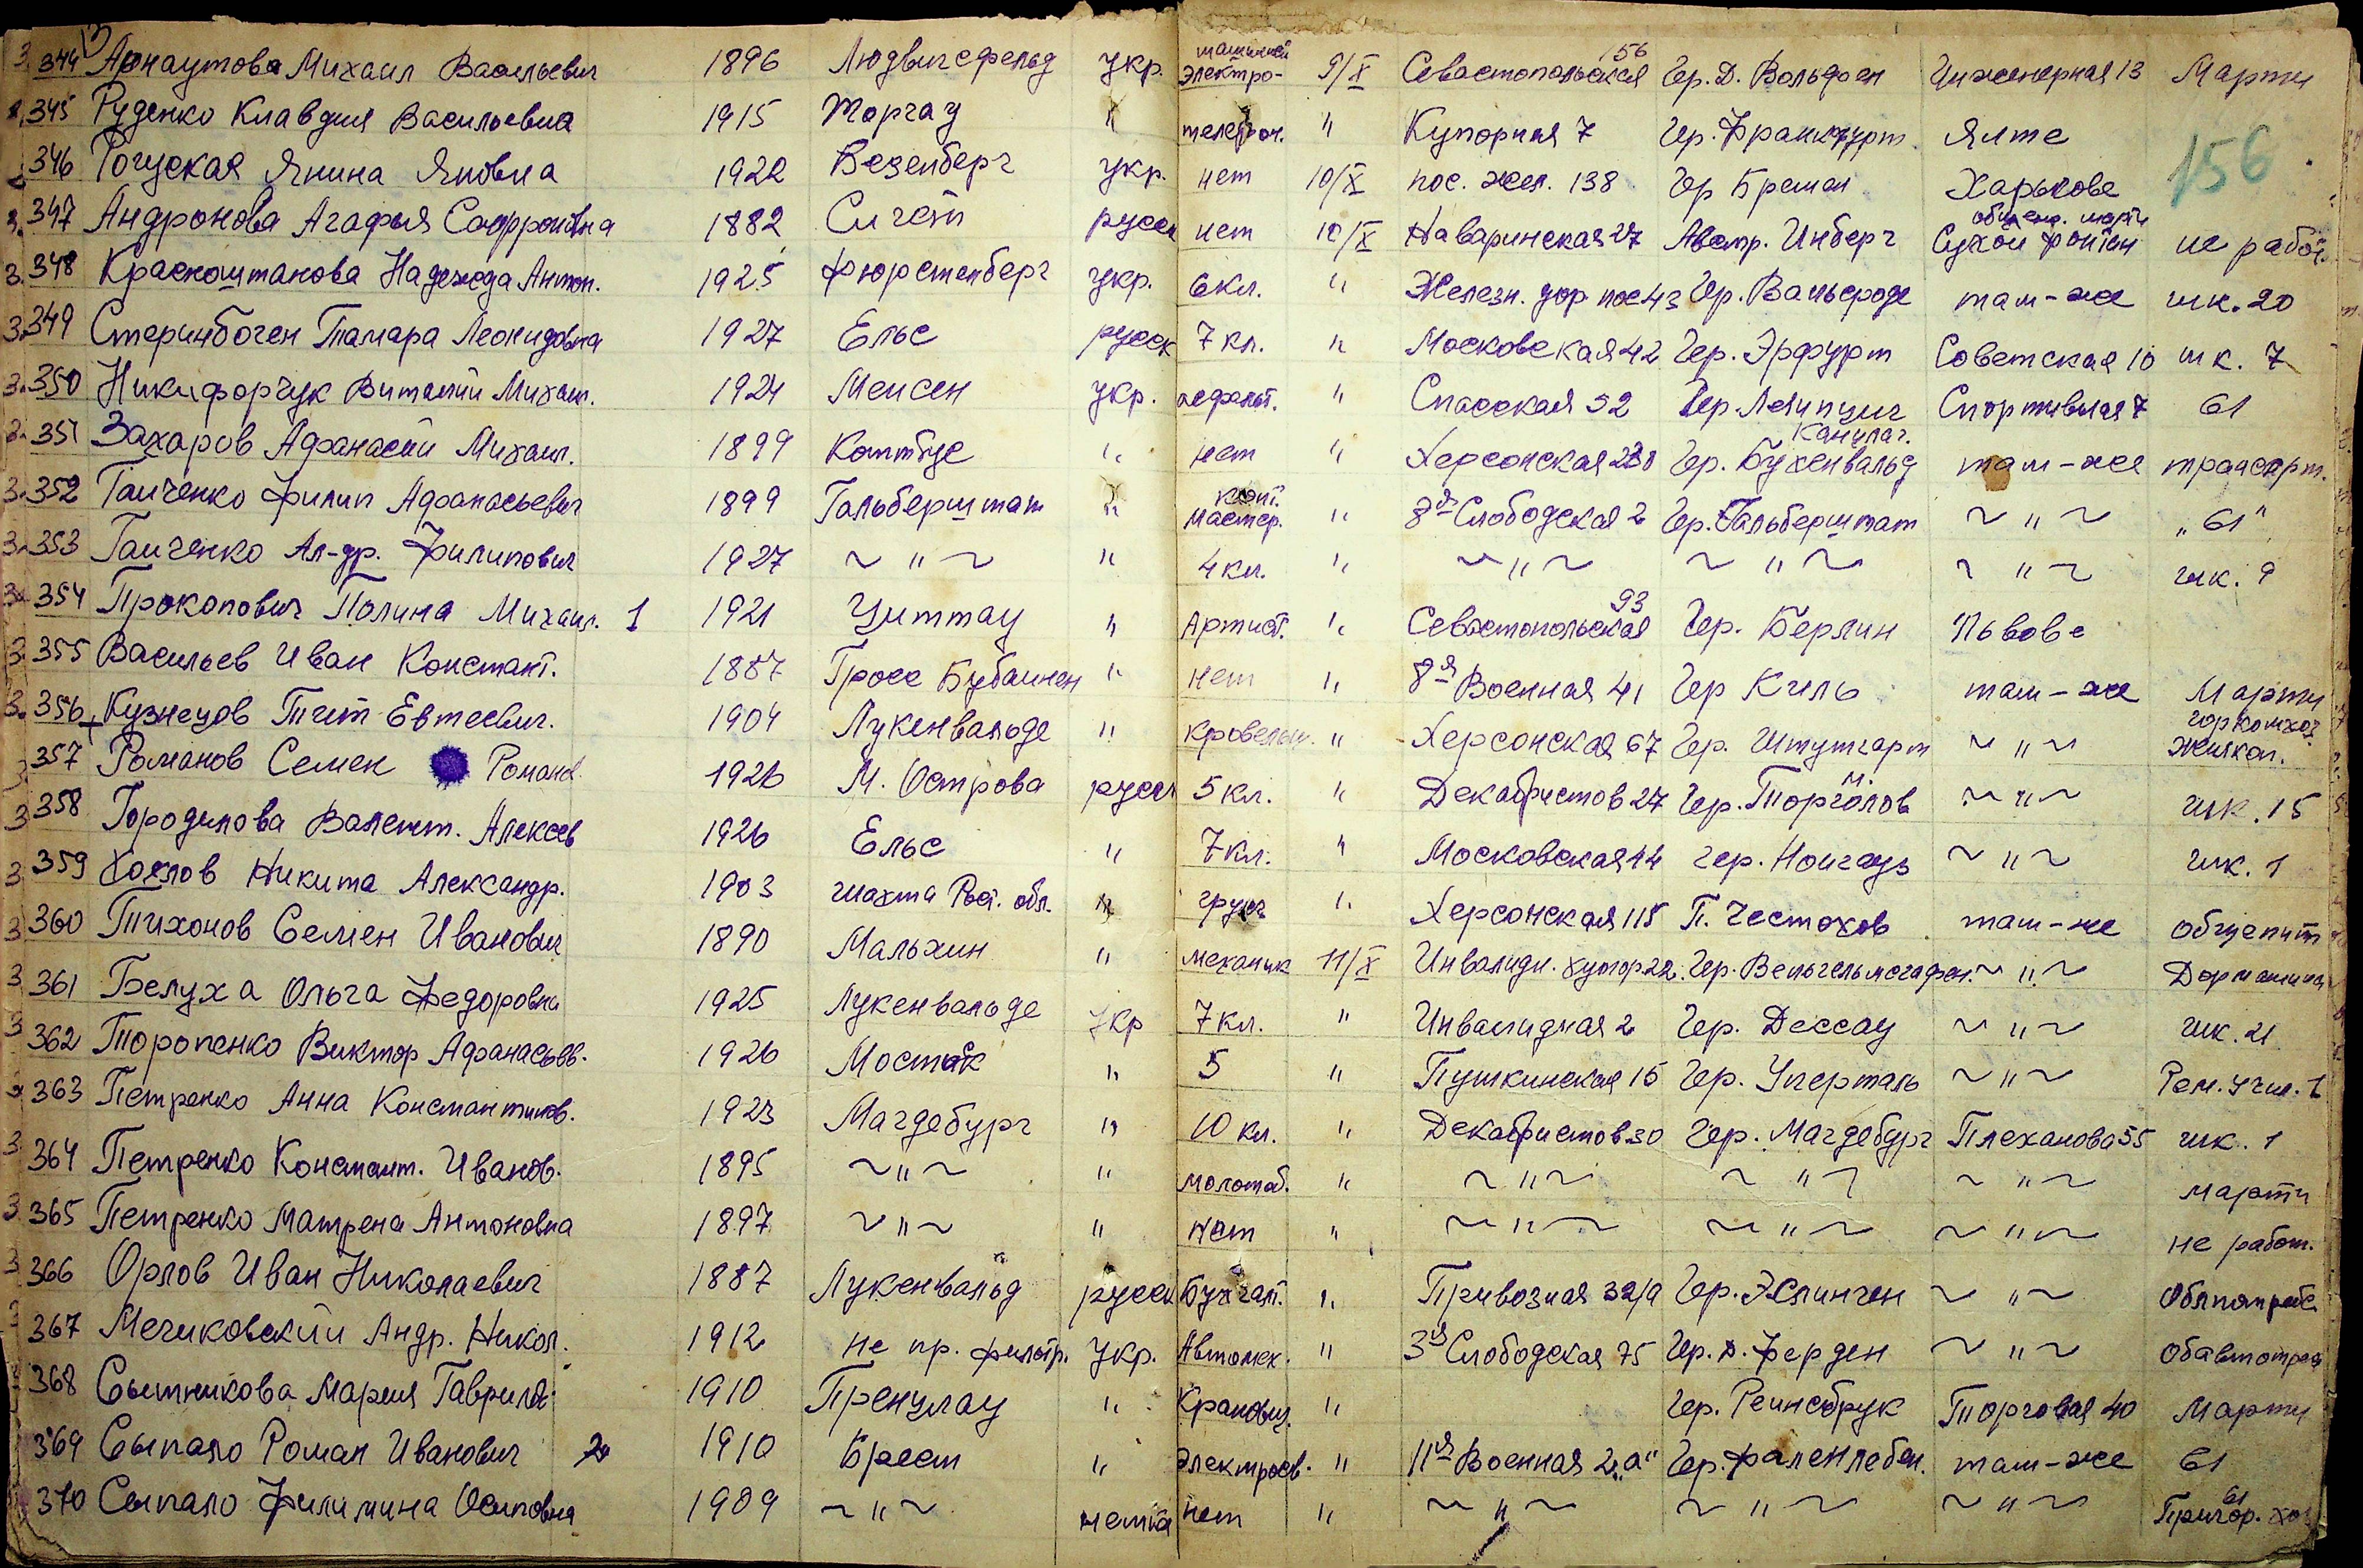 344 Арнаутова Михаил Васильевич 1896 Людвигсфельд укр. машинист электро- 9/X Севастопольская 156 Гер. Д. Вольфен Инженерная 13 Марти
345 Руденко Клавдия Васильевна 1915 Торгау " телефон. " Купорная 7 Гер. Франкфурт Ялте
346 Рогуская Янина Яновна 1922 Везенберг укр. нет 10/X пос. жел. 138 Гер Бремен Харькове 156
347 Андронова Агафья Софроновна 1882 Сигет русск нет 10/X Наваринская 27 Авст. Инберг Сухой фонтан не работ.
348 Красноштанова Надежда Антон. 1925 Фюрстенберг укр. 6 кл. " Железн. дор. пос 43 Гер. Вальсроде там-же шк. 20
349 Стеринбоген Тамара Леонидовна 1927 Ельс русск 7 кл. " Московская 42 Гер. Эрфурт Советская 10 шк. 7
350 Никифорчук Виталий Михаил. 1924 Меисен укр. асфальт. " Спасская 32 Гер. Лейпциг Спортивная 7 61
351 Захаров Афанасий Михаил. 1899 Коттбус " нет " Херсонская 230 Гер. Бухенвальд Канцлаг. там-же транспорт.
352 Ганченко Филип Афанасьевич 1899 Гальберштат " мастер. " 8я Слободская 2 Гер. Гальберштат ~ " ~ "61"
353 Ганченко Ал-др. Филипович 1927 ~ " ~ " 4 кл. " ~ " ~ ~ " ~ ~ " ~ шк. 9
354 Прокопович Полина Михаил. 1 1921 Циттау " Артист. " Севастопольская 93 Гер. Берлин Львове
355 Васильев Иван Констант. 1887 Гросс Бубаинен " нет " 8я Военная 41 Гер Киль там-же Марти
356 Кузнецов Тит Евтеевич. 1904 Лукенвальде " кровельщ. " Херсонская 67 Гер. Штутгарт ~ " ~ горкомхоз жилкоп.
357 Романов Семен Романов. 1926 М. Острова русск 5 кл. " Декабристов 27 Гер. м. Торголов ~ " ~ шк. 15
358 Городилова Валент. Алексеев 1926 Ельс " 7 кл. " Московская 14 Гер. Ноигауз ~ " ~ шк. 1
359 Хохлов Никита Александр. 1903 шахта Рост. обл. " грузч " Херсонская 115 П. Честохов там-же общепит
360 Тихонов Семен Иванович 1890 Мальхин " механик 11/X Инвалидн. хутор 22. Гер. Вельгельмсгафен. ~ " ~
361 Белуха Ольга Федоровна 1925 Лукенвальде укр 7 кл. " Инвалидная 2 Гер. Дессау ~ " ~ шк. 21
362 Торопенко Виктор Афанасьев. 1926 Мостик " 5 " Пушкинская 15 Гер. Уперталь ~ " ~ Рем. учил. 1
363 Петренко Анна Константинов. 1923 Магдебург " 10 кл. " Декабристов 30 Гер. Магдебург Плеханова 55 шк. 1
364 Петренко Констант. Иванов. 1895 ~ " ~ " молотоб. " ~ " ~ ~ " ~ ~ " ~ Марти
365 Петренко Матрена Антоновна 1897 ~ " ~ " нет " ~ " ~ ~ " ~ ~ " ~ не работ.
366 Орлов Иван Николаевич 1887 Лукенвальд русск Бухгалт. " Привозная 32/9 Гер. Эслинген ~ " ~ Облпотребс.
367 Мечиковский Андр. Никол. 1912 не пр. фильтр. укр. Автомех. " 3я Слободская 75 Гер. Д. Ферден ~ " ~ Обавтотрест
368 Сытникова Мария Гаврил. 1910 Пренцлау " Крановщ. " Гер. Реинсбрук Торговая 40 Марти
369 Сыпало Роман Иванович 1910 Брест " электросв. " 11я Военная 2 "а" Гер. Фаленлебен. там-же 61
370 Сыпало Филимина Осиповна 1909 ~ " ~ немка нет " ~ " ~ ~ " ~ ~ " ~ 61 Пригор. хоз